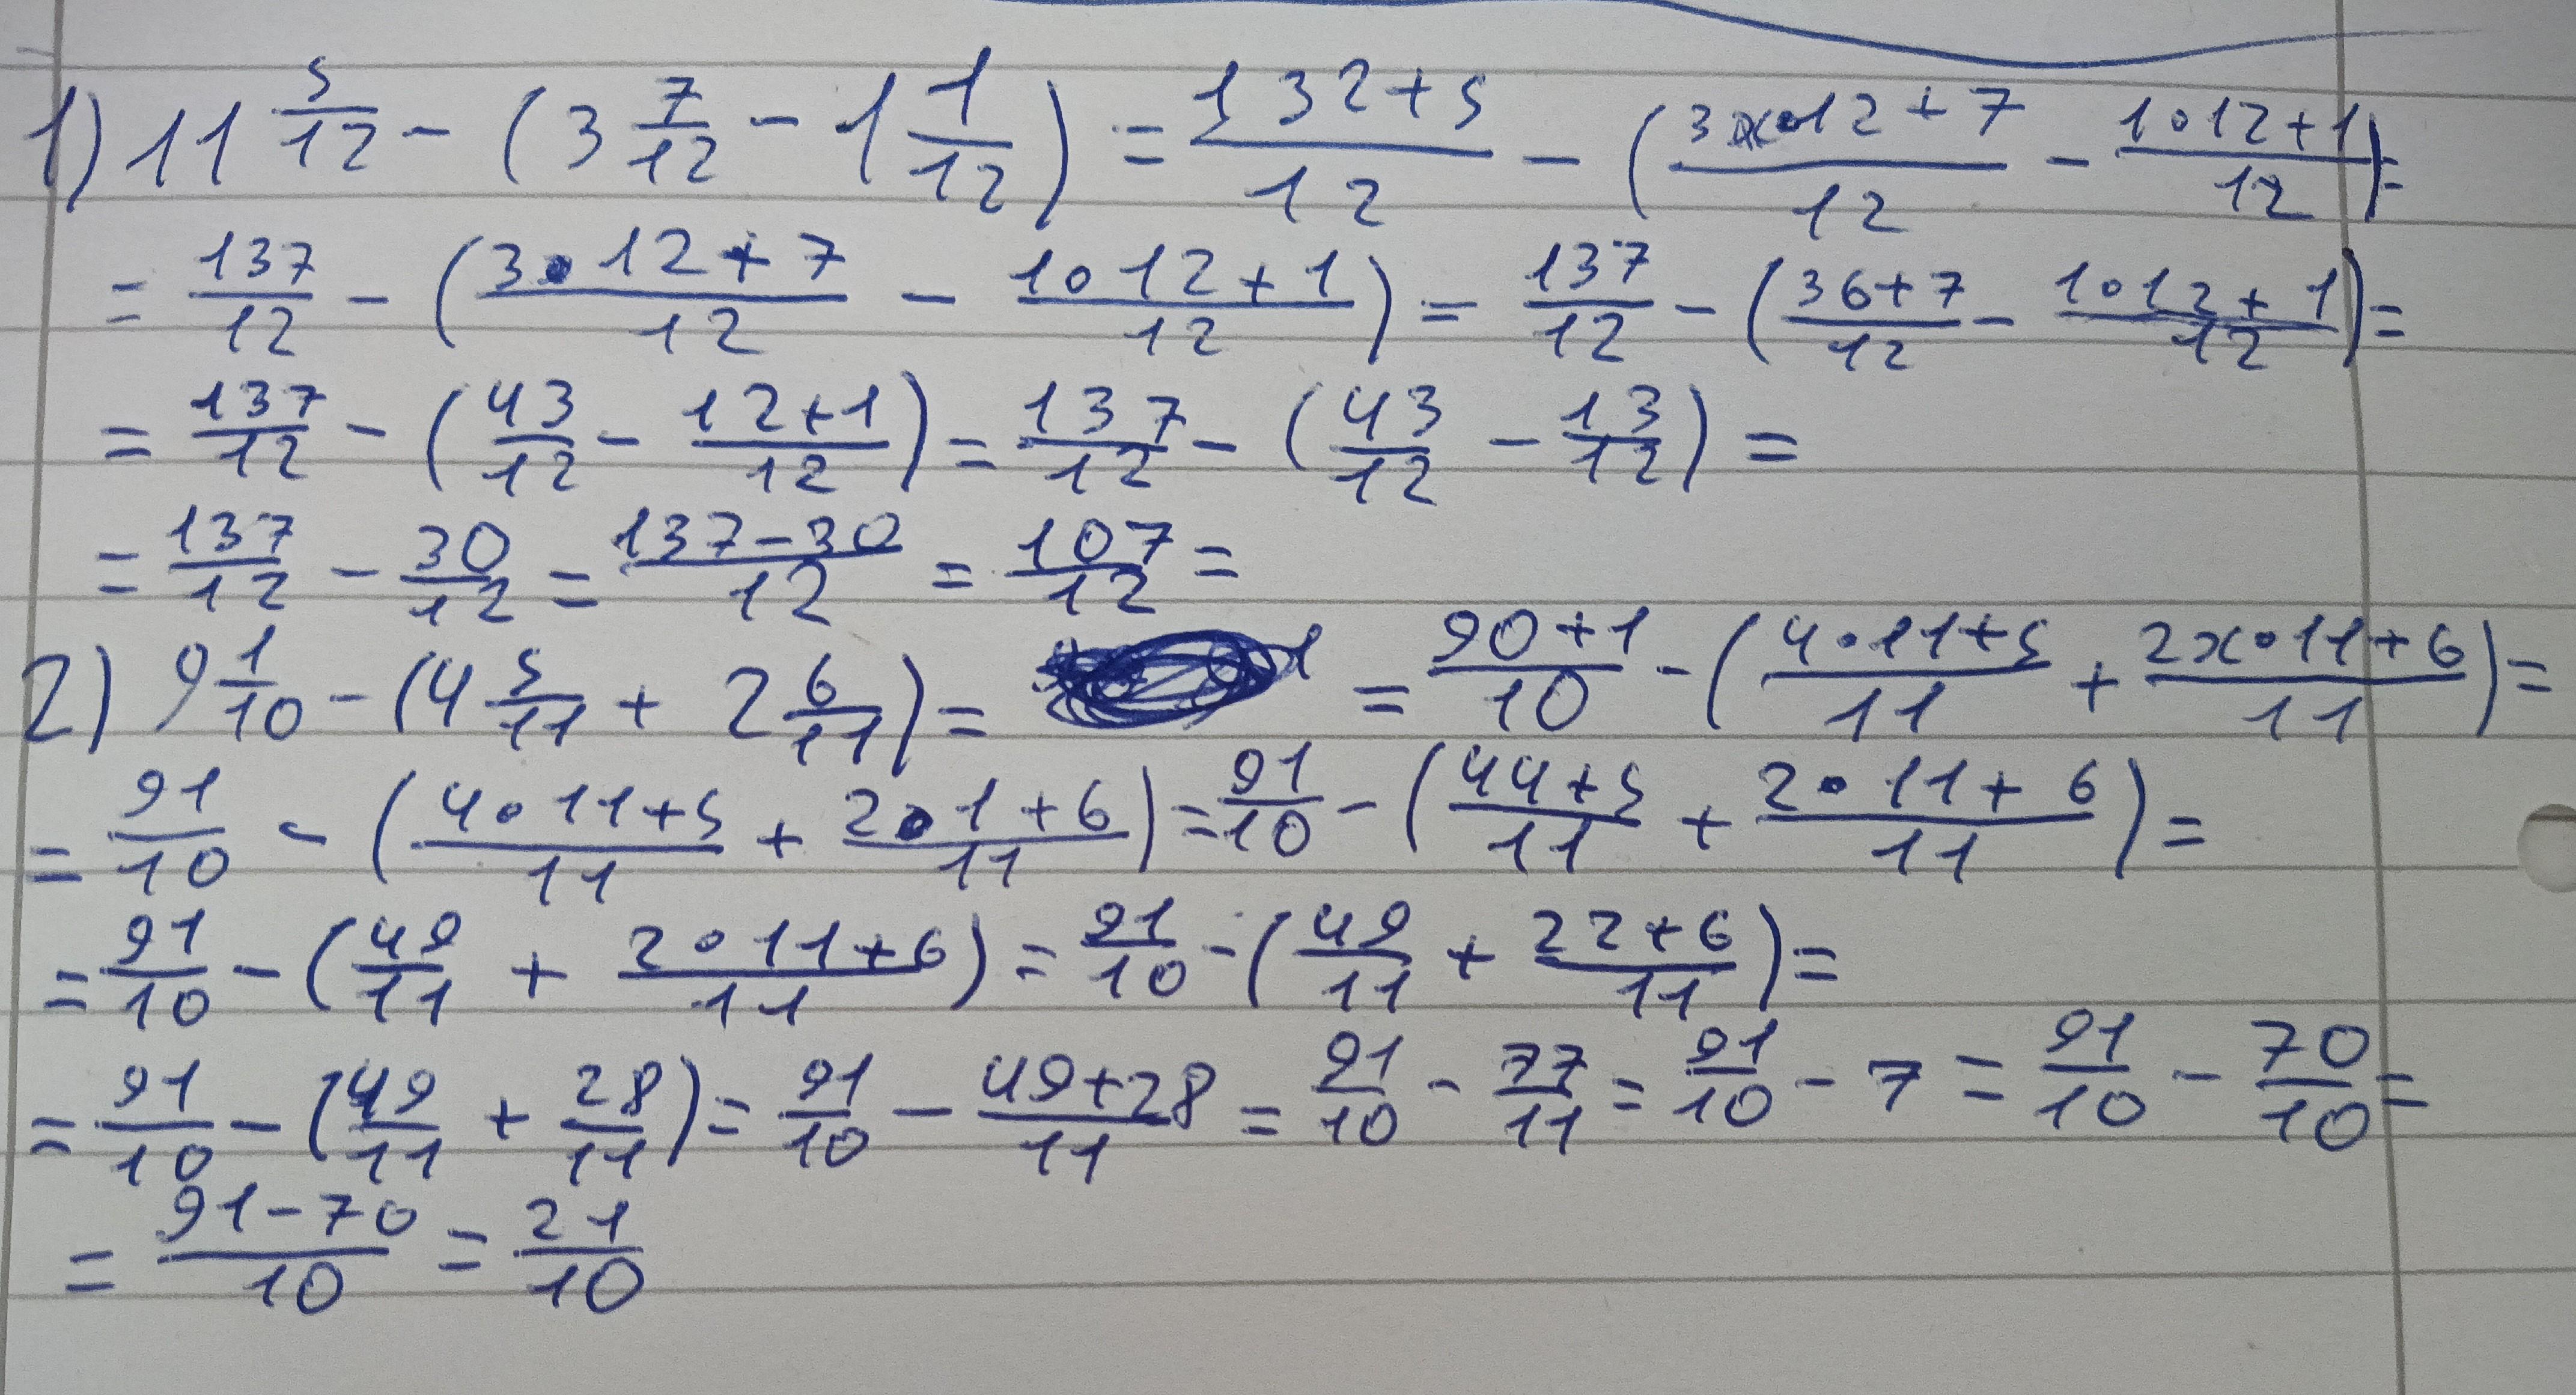 1) 11 5/12 - (3 7/12 - 1 1/12) = (132+5)/12 - ((3x•12+7)/12 - (1•12+1)/12) =
= 137/12 - ((3•12+7)/12 - (1•12+1)/12) = 137/12 - ((36+7)/12 - (1•12+1)/12) =
= 137/12 - (43/12 - (12+1)/12) = 137/12 - (43/12 - 13/12) =
= 137/12 - 30/12 = (137-30)/12 = 107/12 =
2) 9 1/10 - (4 5/11 + 2 6/11) = = (90+1)/10 - ((4•11+5)/11 + (2x•11+6)/11) =
= 91/10 - ((4•11+5)/11 + (2•1+6)/11) = 91/10 - ((44+5)/11 + (2•11+6)/11) =
= 91/10 - (49/11 + (2•11+6)/11) = 91/10 - (49/11 + (22+6)/11) =
= 91/10 - (49/11 + 28/11) = 91/10 - (49+28)/11 = 91/10 - 77/11 = 91/10 - 7 = 91/10 - 70/10 =
= (91-70)/10 = 21/10